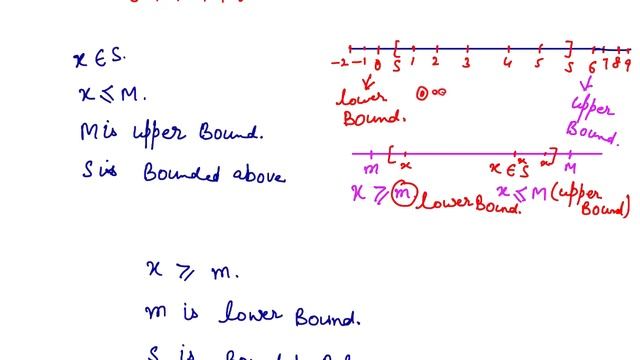 x ∈ S.
x ≤ M.
M is upper Bound.
S is Bounded above
-2 -1 0 [ S 1 2 3 4 5 ] S 6 7 8 9
lower Bound.
0 ∞
upper Bound.
m [ x x ∈ S x x ] M
x ≥ m lower Bound. x ≤ M (upper Bound)
x ≥ m.
m is lower Bound.
S is